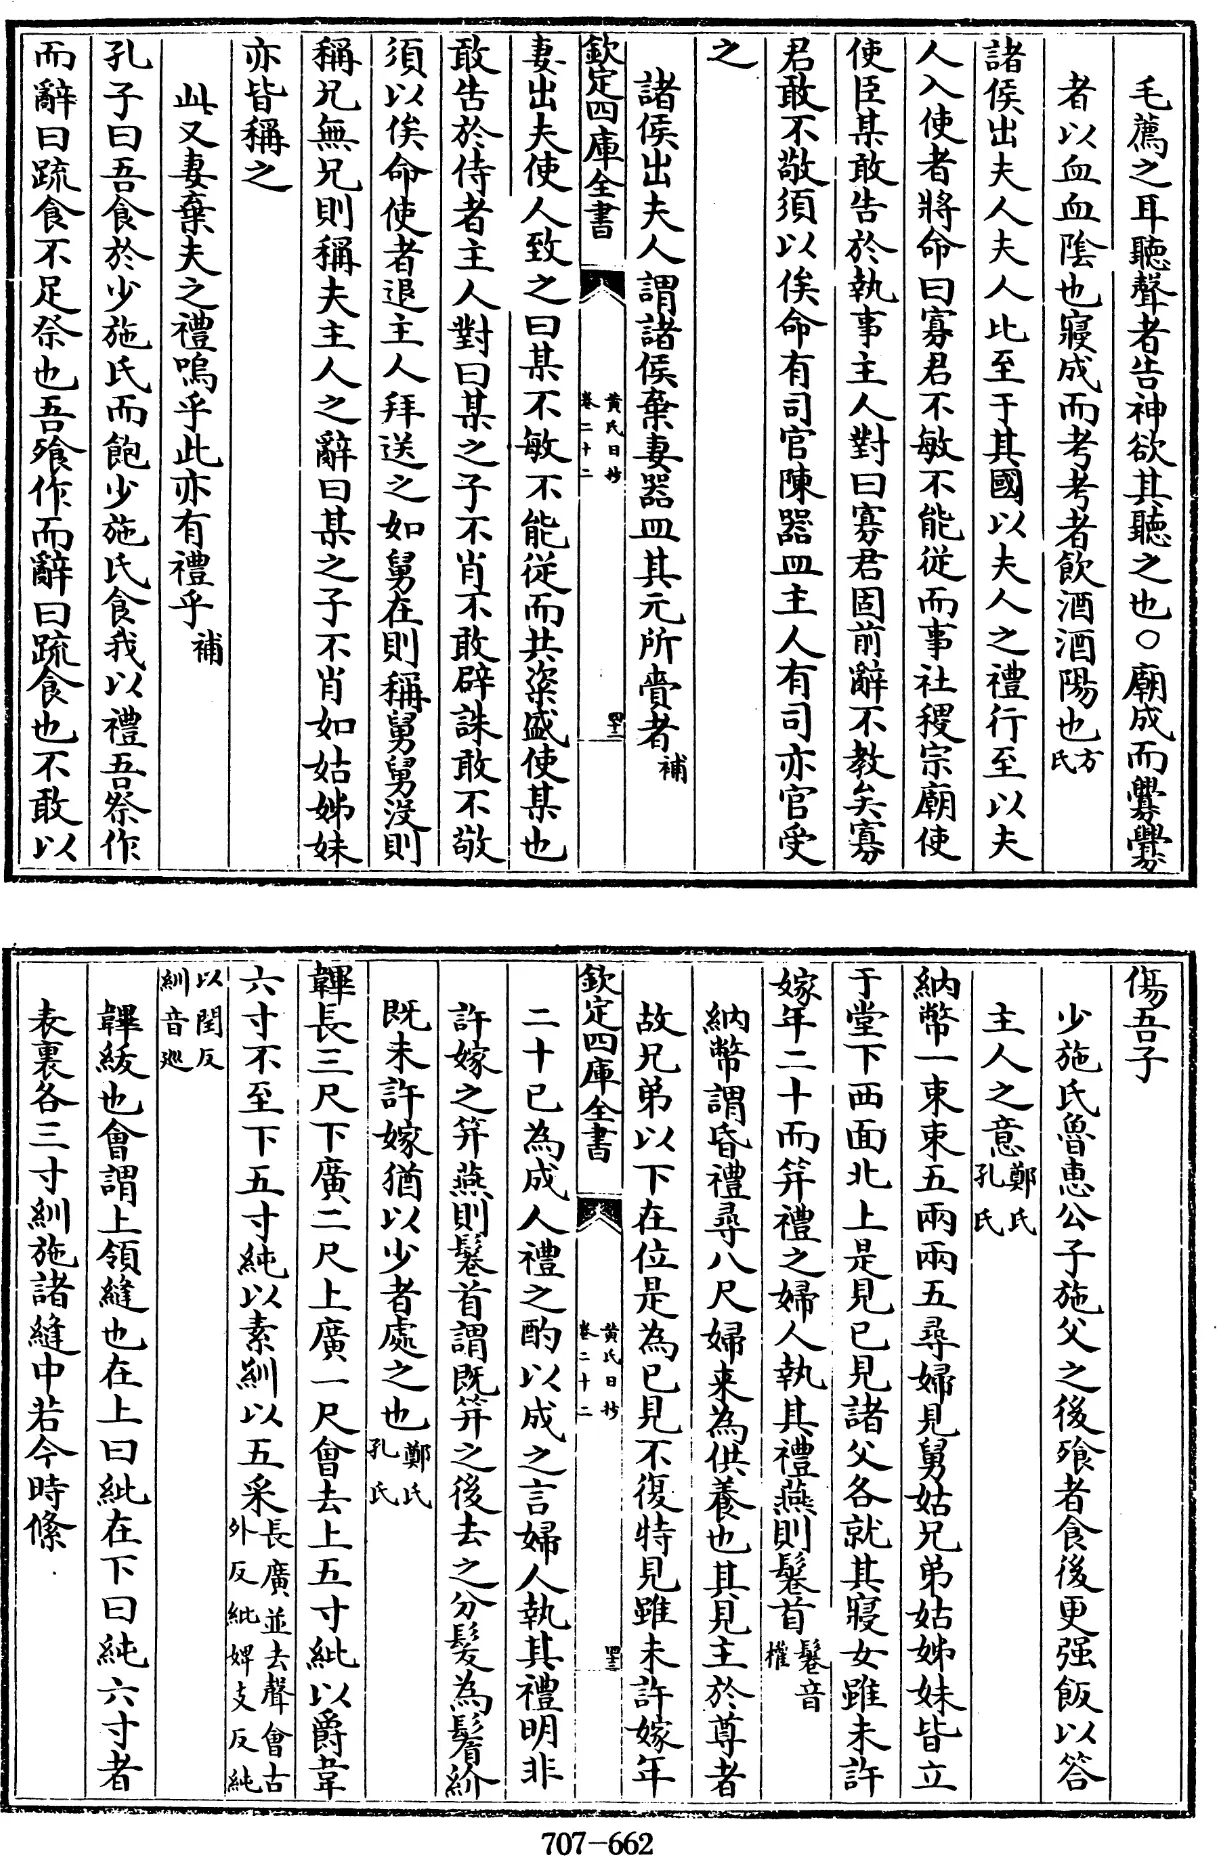 毛薦之耳聽聲者告神欲其聽之也○廟成而釁釁
者以血血陰也寢成而考考者飲酒酒陽也方氏
諸侯出夫人夫人比至于其國以夫人之禮行至以夫
人入使者將命曰寡君不敏不能從而事社稷宗廟使
使臣某敢告於執事主人對曰寡君固前辭不教矣寡
君敢不敬須以俟命有司官陳器皿主人有司亦官受
之
諸侯出夫人謂諸侯棄妻器皿其元所賫者補
欽定四庫全書
黃氏日抄
卷二十二
四十二
妻出夫使人致之曰某不敏不能從而共粢盛使某也
敢告於侍者主人對曰某之子不肖不敢辟誅敢不敬
須以俟命使者退主人拜送之如舅在則稱舅舅沒則
稱兄無兄則稱夫主人之辭曰某之子不肖如姑姊妹
亦皆稱之
此又妻棄夫之禮嗚乎此亦有禮乎補
孔子曰吾食於少施氏而飽少施氏食我以禮吾祭作
而辭曰疏食不足祭也吾飱作而辭曰疏食也不敢以
傷吾子
少施氏魯惠公子施父之後飱者食後更强飯以答
主人之意鄭氏孔氏
納幣一束束五兩兩五尋婦見舅姑兄弟姑姊妹皆立
于堂下西面北上是見已見諸父各就其寢女雖未許
嫁年二十而笄禮之婦人執其禮燕則鬈首鬈音權
納幣謂昏禮尋八尺婦来為供養也其見主於尊者
故兄弟以下在位是為已見不復特見雖未許嫁年
欽定四庫全書
黃氏日抄
卷二十二
四十三
二十已為成人禮之酌以成之言婦人執其禮明非
許嫁之笄燕則鬈首謂既笄之後去之分髮為鬌紒
既未許嫁猶以少者處之也鄭氏孔氏
韠長三尺下廣二尺上廣一尺會去上五寸紕以爵韋
六寸不至下五寸純以素紃以五采長廣並去聲會古外反紕婢支反純
以閏反紃音廵
韠紱也會謂上領縫也在上曰紕在下曰純六寸者
表裏各三寸紃施諸縫中若今時絛
707-662